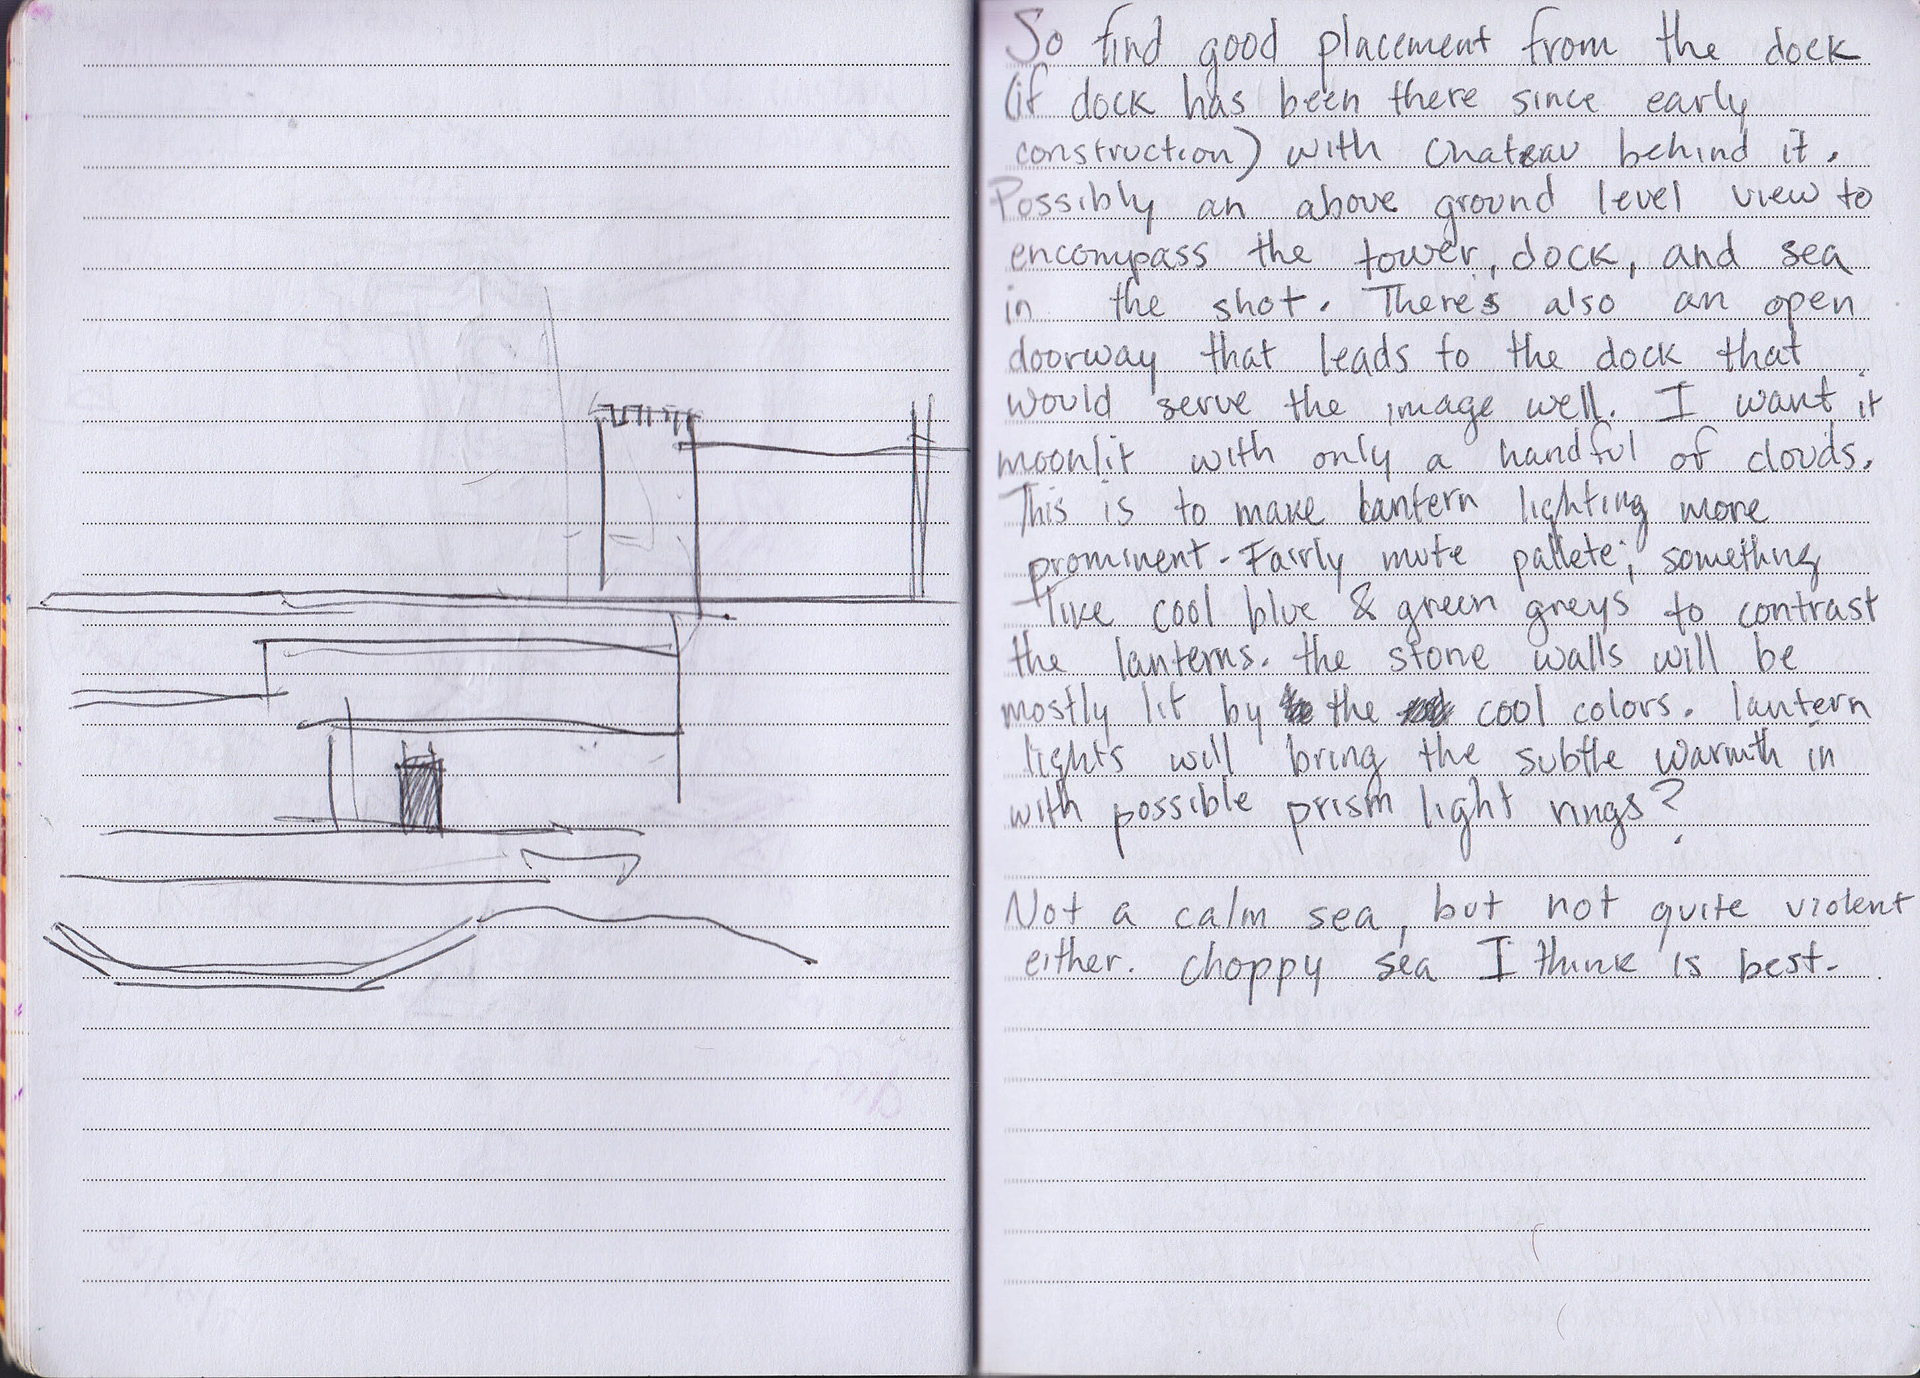 So find good placement from the dock
(if dock has been there since early
construction) with Chateau behind it.
Possibly an above ground level view to
encompass the tower, dock, and sea
in the shot. There's also an open
doorway that leads to the dock that
would serve the image well. I want it
moonlit with only a handful of clouds.
This is to make lantern lighting more
prominent. Fairly mute pallete; something
like cool blue & green greys to contrast
the lanterns. the stone walls will be
mostly lit by the cool colors. lantern
lights will bring the subtle warmth in
with possible prism light rings?
Not a calm sea, but not quite violent
either. choppy sea I think is best.